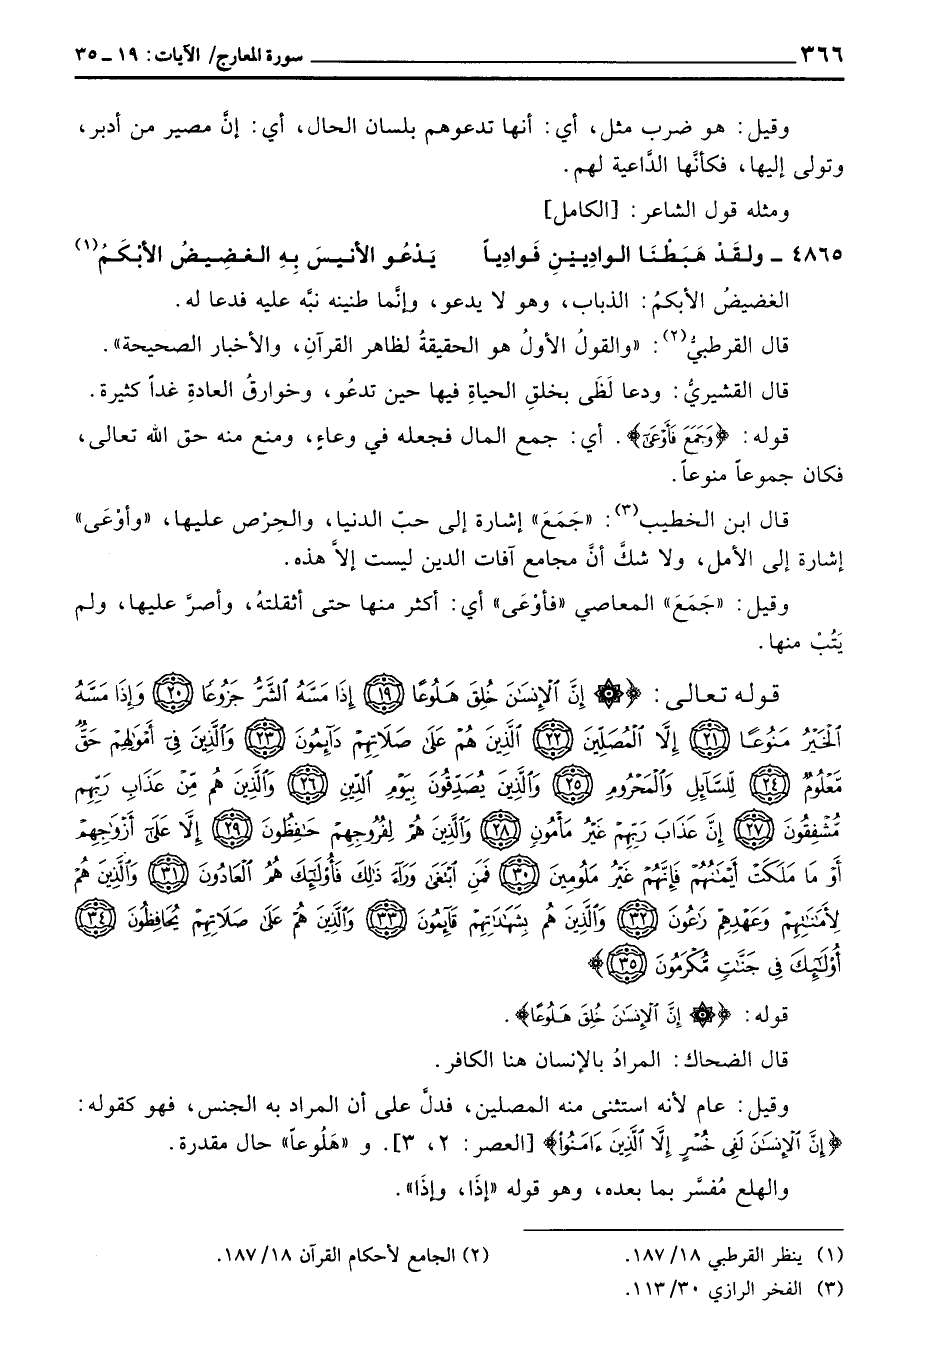 ٣٦٦ سورة المعارج/ الآيات: ١٩ ـ ٣٥
وقيل: هو ضرب مثل، أي: أنها تدعوهم بلسان الحال، أي: إنَّ مصير من أدبر،
وتولى إليها، فكأنَّها الدَّاعية لهم.
ومثله قول الشاعر: [الكامل]
٤٨٦٥ ـ ولقَدْ هَبَطْنَا الوادِيَيْنِ فَوادِياً يَدْعُو الأنيسَ بِهِ الغضِيضُ الأبْكَمُ(١)
الغضيضُ الأبكمُ: الذباب، وهو لا يدعو، وإنَّما طنينه نبَّه عليه فدعا له.
قال القرطبيُّ(٢): «والقولُ الأولُ هو الحقيقةُ لظاهر القرآنِ، والأخبار الصحيحة».
قال القشيريُّ: ودعا لَظَى بخلقِ الحياةِ فيها حين تدعُو، وخوارقُ العادةِ غداً كثيرة.
قوله: ﴿وَجَمَعَ فَأَوْعَىٰٓ﴾. أي: جمع المال فجعله في وعاءٍ، ومنع منه حق الله تعالى،
فكان جموعاً منوعاً.
قال ابن الخطيب(٣): «جَمَعَ» إشارة إلى حبّ الدنيا، والحِرْص عليها، «وأوْعَى»
إشارة إلى الأمل، ولا شكَّ أنَّ مجامع آفات الدين ليست إلاَّ هذه.
وقيل: «جَمَعَ» المعاصي «فأوْعَى» أي: أكثر منها حتى أثقلتهُ، وأصرَّ عليها، ولم
يَتُبْ منها.
قوله تعالى: ﴿۞ إِنَّ ٱلْإِنسَٰنَ خُلِقَ هَلُوعًا ﴿١٩﴾ إِذَا مَسَّهُ ٱلشَّرُّ جَزُوعًا ﴿٢٠﴾ وَإِذَا مَسَّهُ
ٱلْخَيْرُ مَنُوعًا ﴿٢١﴾ إِلَّا ٱلْمُصَلِّينَ ﴿٢٢﴾ ٱلَّذِينَ هُمْ عَلَىٰ صَلَاتِهِمْ دَآئِمُونَ ﴿٢٣﴾ وَٱلَّذِينَ فِىٓ أَمْوَٰلِهِمْ حَقٌّ
مَّعْلُومٌ ﴿٢٤﴾ لِّلسَّآئِلِ وَٱلْمَحْرُومِ ﴿٢٥﴾ وَٱلَّذِينَ يُصَدِّقُونَ بِيَوْمِ ٱلدِّينِ ﴿٢٦﴾ وَٱلَّذِينَ هُم مِّنْ عَذَابِ رَبِّهِم
مُّشْفِقُونَ ﴿٢٧﴾ إِنَّ عَذَابَ رَبِّهِمْ غَيْرُ مَأْمُونٍ ﴿٢٨﴾ وَٱلَّذِينَ هُمْ لِفُرُوجِهِمْ حَٰفِظُونَ ﴿٢٩﴾ إِلَّا عَلَىٰٓ أَزْوَٰجِهِمْ
أَوْ مَا مَلَكَتْ أَيْمَٰنُهُمْ فَإِنَّهُمْ غَيْرُ مَلُومِينَ ﴿٣٠﴾ فَمَنِ ٱبْتَغَىٰ وَرَآءَ ذَٰلِكَ فَأُوْلَٰٓئِكَ هُمُ ٱلْعَادُونَ ﴿٣١﴾ وَٱلَّذِينَ هُمْ
لِأَمَٰنَٰتِهِمْ وَعَهْدِهِمْ رَٰعُونَ ﴿٣٢﴾ وَٱلَّذِينَ هُم بِشَهَٰدَٰتِهِمْ قَآئِمُونَ ﴿٣٣﴾ وَٱلَّذِينَ هُمْ عَلَىٰ صَلَاتِهِمْ يُحَافِظُونَ ﴿٣٤﴾
أُوْلَٰٓئِكَ فِى جَنَّٰتٍ مُّكْرَمُونَ ﴿٣٥﴾﴾
قوله: ﴿۞ إِنَّ ٱلْإِنسَٰنَ خُلِقَ هَلُوعًا﴾.
قال الضحاك: المرادُ بالإنسان هنا الكافر.
وقيل: عام لأنه استثنى منه المصلين، فدلَّ على أن المراد به الجنس، فهو كقوله:
﴿إِنَّ ٱلْإِنسَٰنَ لَفِى خُسْرٍ إِلَّا ٱلَّذِينَ ءَامَنُوا۟﴾ [العصر: ٢، ٣]. و «هَلُوعاً» حال مقدرة.
والهلع مُفسَّر بما بعده، وهو قوله «إذَا، وإذَا».
(١) ينظر القرطبي ١٨/ ١٨٧. (٢) الجامع لأحكام القرآن ١٨/ ١٨٧.
(٣) الفخر الرازي ٣٠/ ١١٣.